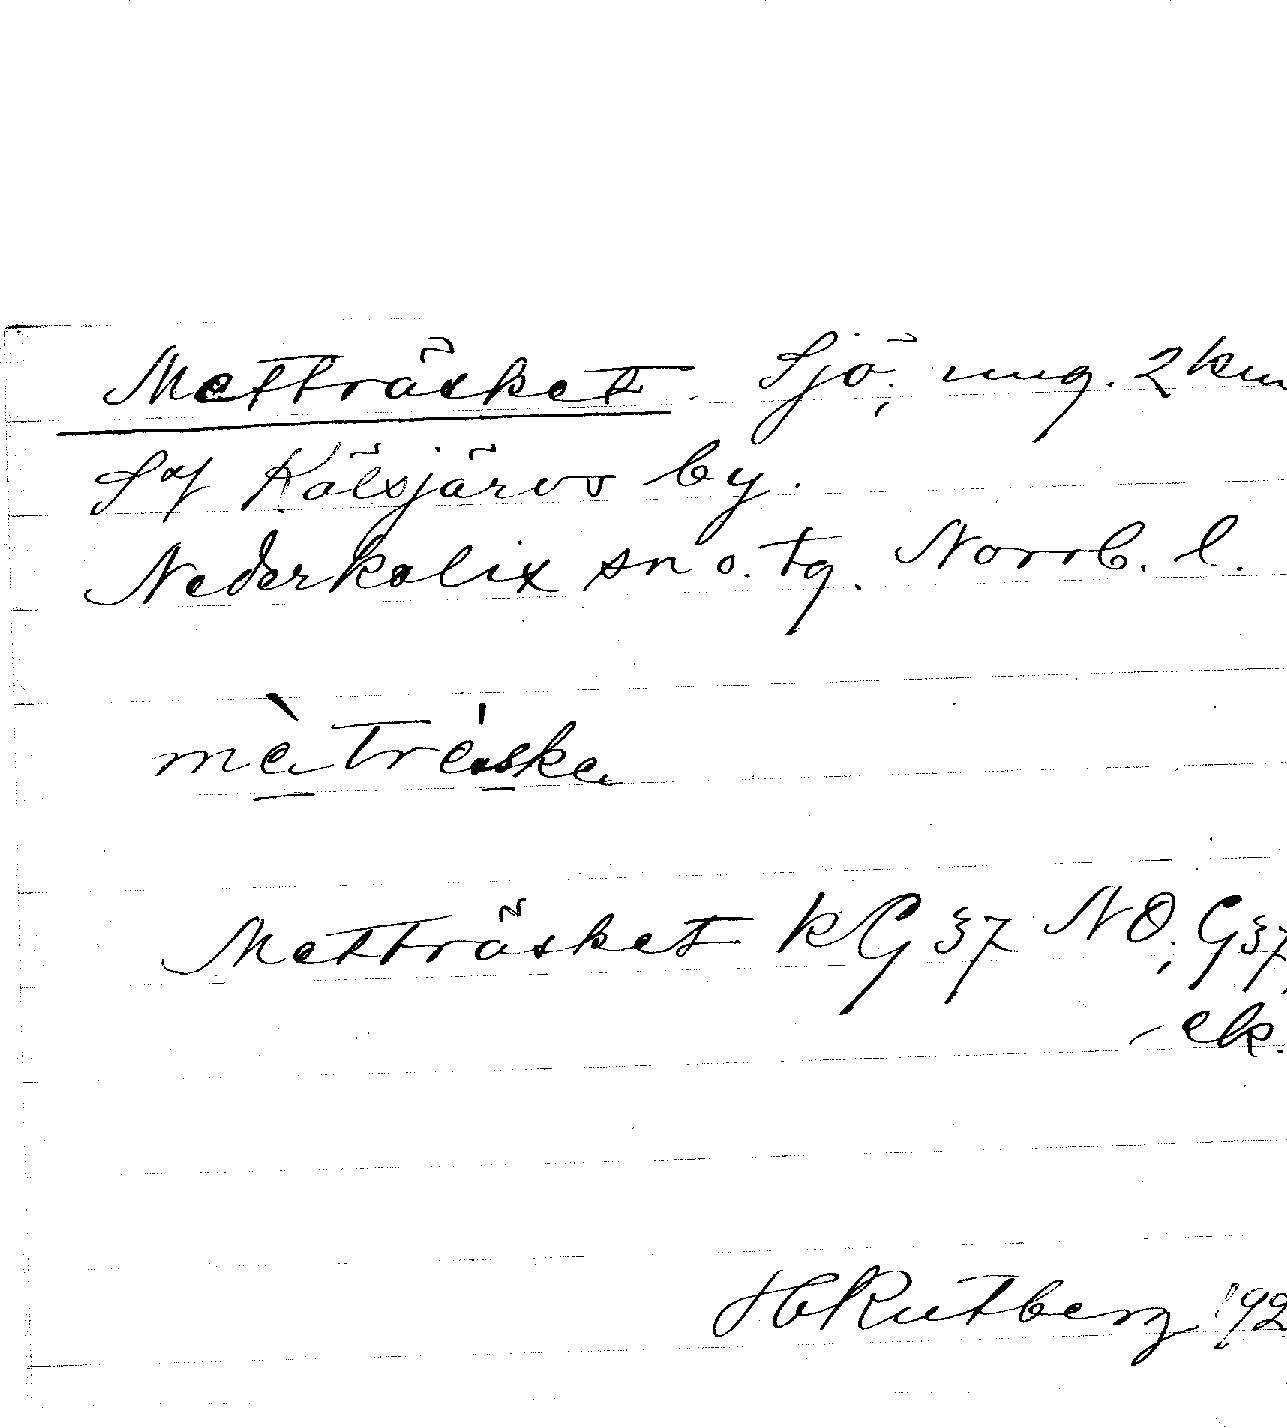 Metträsket. Sjö, ung. 2 km
S of Kälsjärvs by.
Nederkalix sn o. tg. Norrb. l.
mètréska
Metträsket kG 37 NO; G37
ek.
HRutberg 192